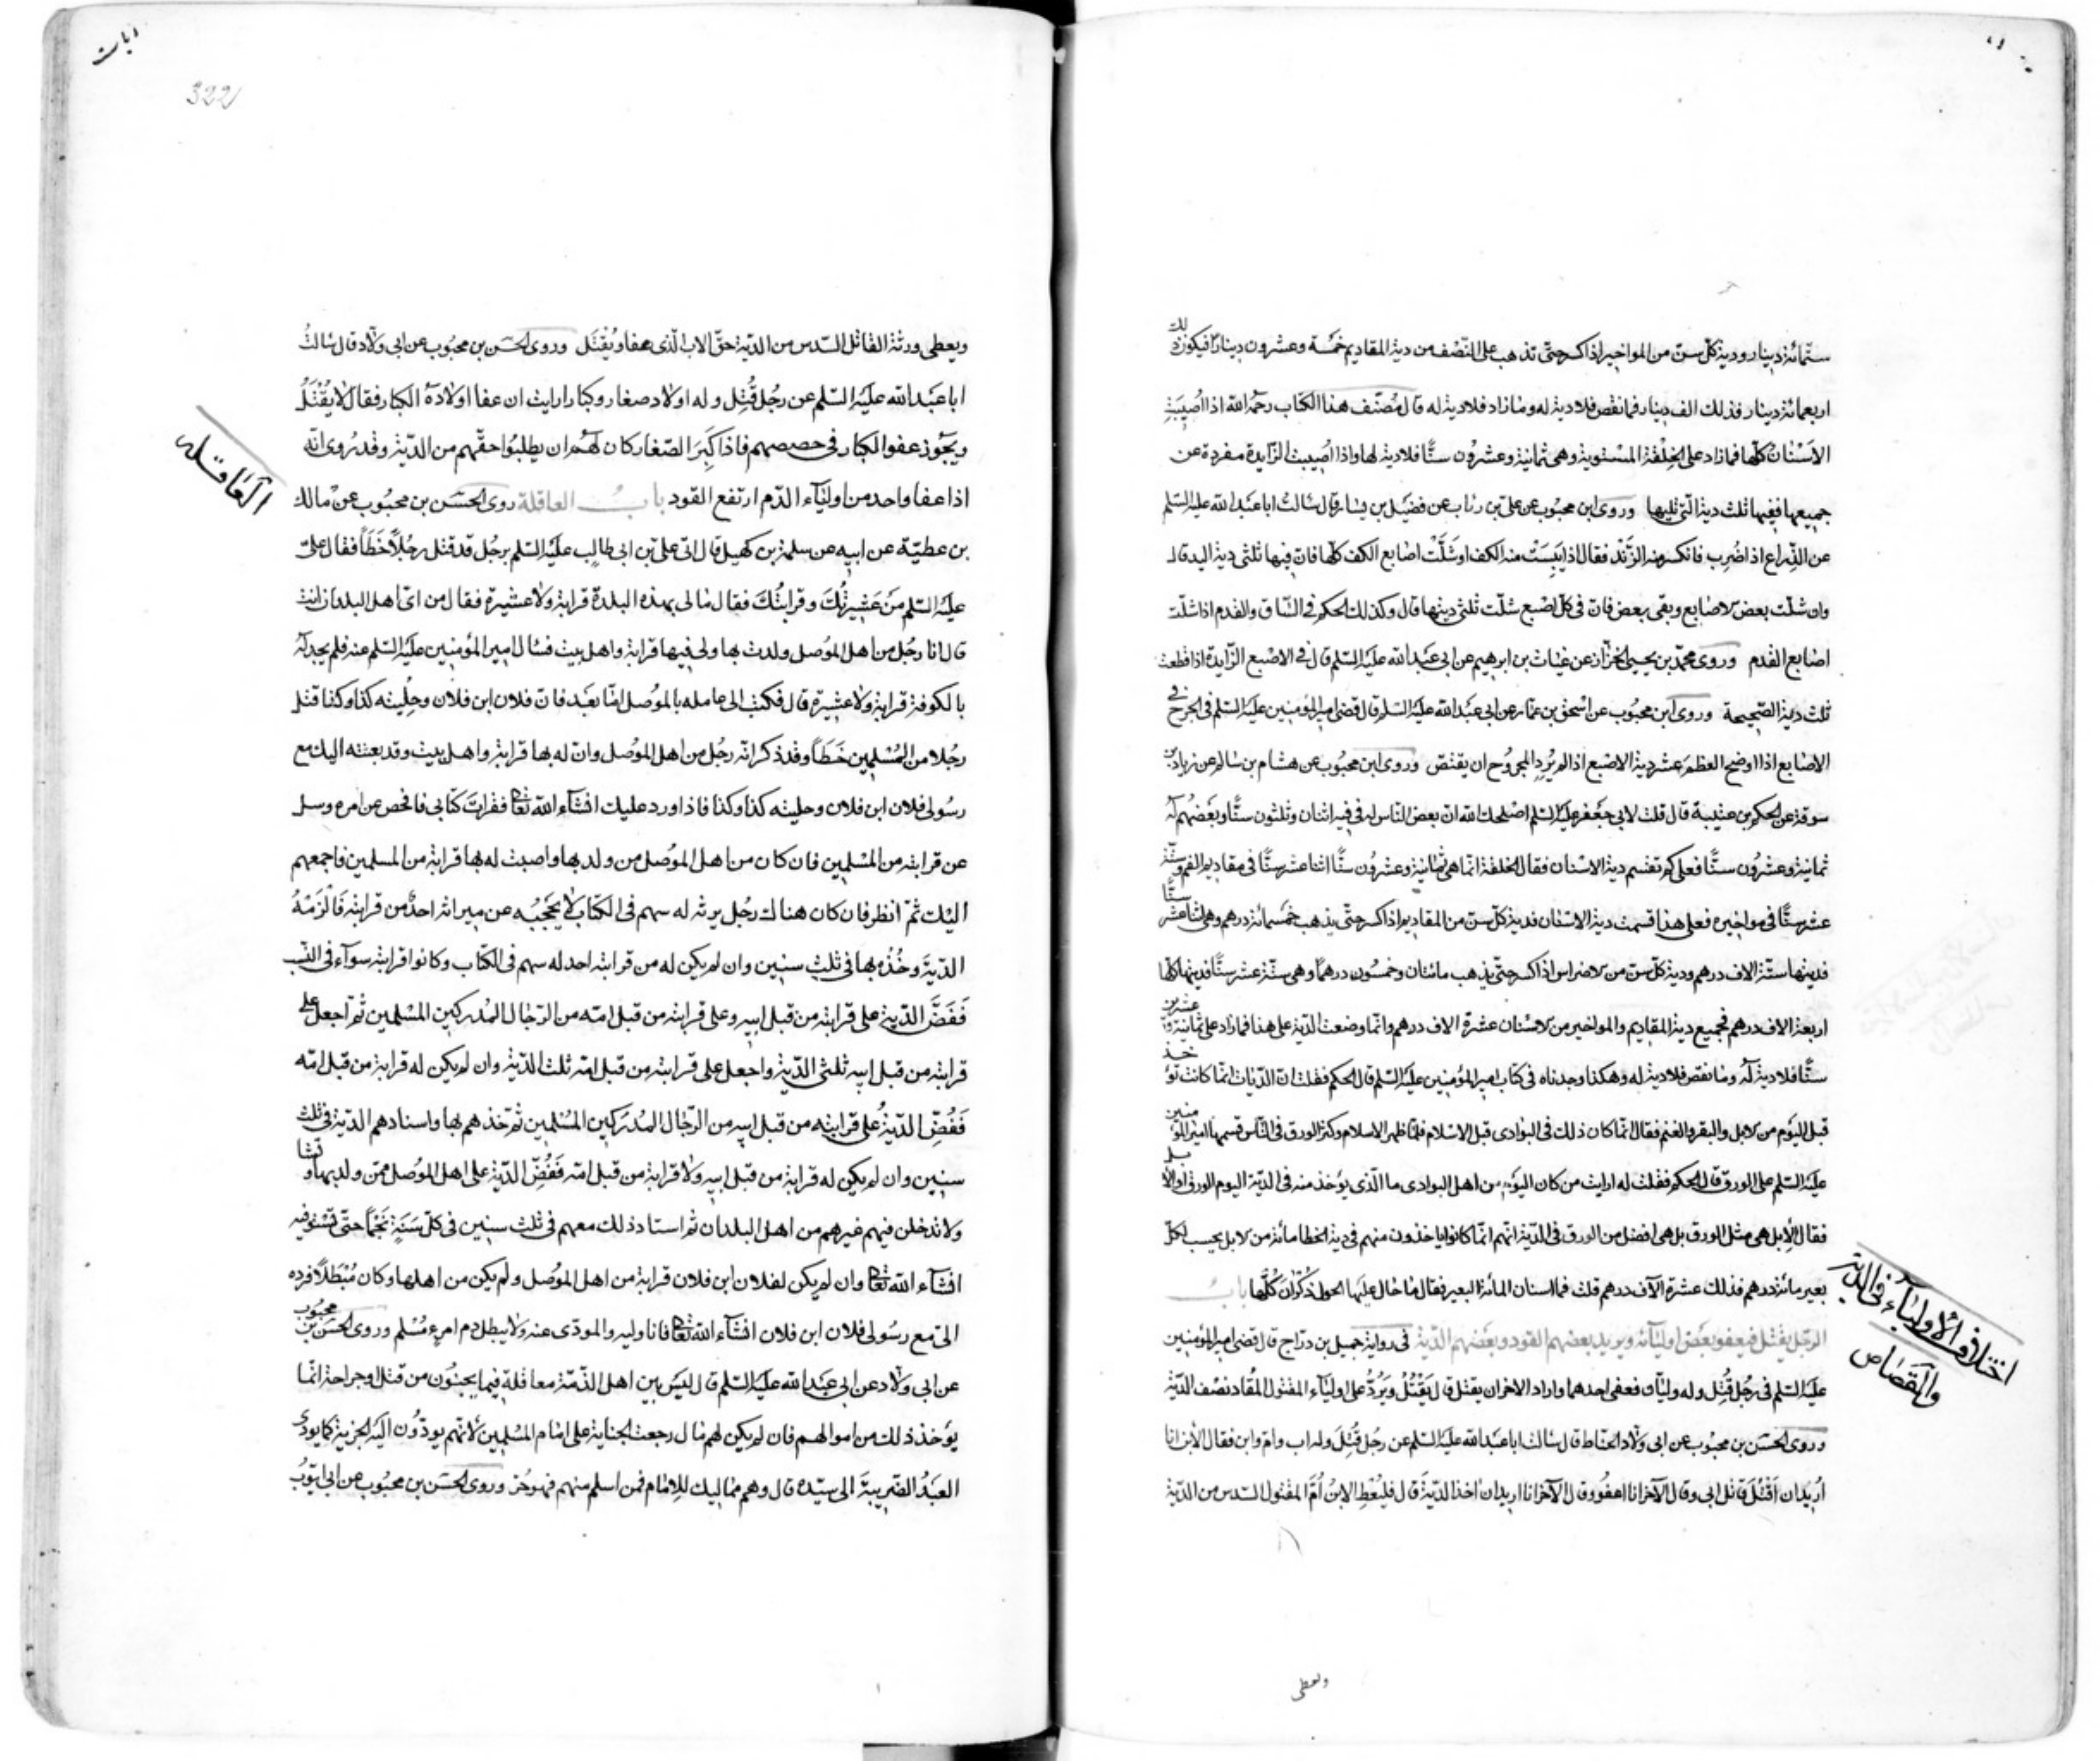 ستّمائة دينار ودية كلّ سنّ من المواخير اذا كسر حتّى تذهب على النّصف من دية المقاديم خمسة وعشرون دينارا فيكون ذلك
اربعمائة دينار فذلك الف دينار فما نقص فلا دية له وما زاد فلا دية له قال مصنّف هذا الكتاب رحمه الله اذا اُصيبت
الاسنان كلّها فما زاد على الخلقة المستوية وهى ثمانية وعشرون سنّا فلا دية لها واذا اصيبت الزّايدة مفردة عن
جميعها ففيها ثلث دية الّتى تليها وروى ابن محبوب عن علىّ بن رئاب عن فضيل بن يسار قال سالت ابا عبد الله عليه السّلم
عن الذّراع اذا ضُرِب فانكسر منه الزّند فقال اذا يبست منه الكف او شلّت اصابع الكف كلّها فان فيها ثلثى دية اليد قال
وان شلّت بعض الاصابع وبقى بعض فان فى كلّ اصبع شلّت ثلثى ديتها قال وكذلك الحكم فى السّاق والقدم اذا شلّت
اصابع القدم وروى محمّد بن يحيى الخزّاز عن غياث بن ابرهيم عن ابى عبد الله عليه السّلم قال فى الاصبع الزّايدة اذا قطعت
ثلث دية الصّحيحة وروى ابن محبوب عن اسحق بن عمّار عن ابى عبد الله عليه السّلم قال قضى امير المؤمنين عليه السّلم فى الجرح فى
الاصابع اذا اوضح العظم عشر دية الاصبع اذا لم يُرِد المجروح ان يقتصّ وروى ابن محبوب عن هشام بن سالم عن زياد بن
سوقة عن الحكم بن عتيبة قال قلت لابى جعفر عليه السّلم اصلحك الله انّ بعض النّاس له فى فيه اثنان وثلثون سنّا وبعضهم له
ثمانية وعشرون سنّا فعلى كم تقسم دية الاسنان فقال الخلقة انّما هى ثمانية وعشرون سنّا اثنا عشر سنّا فى مقاديم الفم وستّة
عشر سنّا فى مواخيره فعلى هذا قسمت دية الاسنان فدية كلّ سنّ من المقاديم اذا كسر حتّى يذهب خمسمائة درهم وهى اثنا عشر سنّا
فديتها ستّة الاف درهم ودية كلّ سنّ من الاضراس اذا كسر حتّى يذهب مائتان وخمسون درهما وهى ستّة عشر سنّا فديتها كلّها
اربعة الاف درهم فجميع دية المقاديم والمواخير من الاسنان عشرة الاف درهم وانّما وضعت الدّية على هذا فما زاد على ثمانية وعشرين
سنّا فلا دية له وما نقص فلا دية له وهكذا وجدناه فى كتاب امير المؤمنين عليه السّلم قال الحكم فقلت انّ الدّيات انّما كانت تؤخذ
قبل اليوم من الابل والبقر والغنم فقال انّما كان ذلك فى البوادى قبل الاسلام فلمّا ظهر الاسلام وكثر الورق فى النّاس قسمها امير المؤمنين
عليه السّلم على الورق قال الحكم فقلت له ارايت من كان اليوم من اهل البوادى ما الّذى يؤخذ منه فى الدّية اليوم الورق او الابل
فقال الابل هى مثل الورق بل هى افضل من الورق فى الدّية انّهم انّما كانوا ياخذون منهم فى دية الخطا مائة من الابل يحسب لكلّ
بعير مائة درهم فذلك عشرة الآف درهم قلت فما اسنان المائة البعير فقال ما حال عليها الحول ذكران كلّها باب
الرّجل يقتل فيعفو بعض اوليآئه ويريد بعضهم القود وبعضهم الدّية فى رواية جميل بن درّاج قال قضى امير المؤمنين
عليه السّلم فى رجل قُتِل وله وليّان فعفى احدهما واراد الاخر ان يقتل قال يَقْتُلُ ويَرُدُّ على اوليآء المقتول المقاد نصف الدّية
وروى الحسن بن محبوب عن ابى ولّاد الحنّاط قال سالت ابا عبد الله عليه السّلم عن رجل قُتِلَ وله اب وامّ وابن فقال الابن انا
اُريد ان اَقْتُلَ قاتل ابى وقال الآخر انا اعفو وقال الآخر انا اريد ان اخذ الدّية قال فليُعْطِ الابنُ اُمَّ المقتول السّدس من الدّية
اختلاف الاوليآء فى الدّية
والقصاص
ويعطى
322
ويعطى ورثة القاتل السّدس من الدّية حقّ الاب الّذى عفا ويُقْتَل وروى الحسن بن محبوب عن ابى ولّاد قال سالتُ
ابا عبد الله عليه السّلم عن رجل قُتِل وله اولاد صغار وكبار ارايت ان عفا اولاده الكبار فقال لا يُقْتَلُ
ويجوز عفو الكبار فى حصصهم فاذا كَبِرَ الصّغار كان لهم ان يطلبوا حقّهم من الدّية وقد رُوى انّه
اذا عفا واحد من اوليآء الدّم ارتفع القود باب العاقلة روى الحسن بن محبوب عن مالك
بن عطيّة عن ابيه عن سلمة بن كهيل قال اتى علىّ بن ابى طالب عليه السّلم برجل قد قتل رجُلاً خَطَأً فقال علىّ
عليه السّلم مَنْ عَشِيرتُكَ وقرابتُكَ فقال ما لى بهذه البلدة قرابة ولا عشيرة فقال من اىّ اهل البلدان انت
قال انا رجُل من اهل الموصل ولدت بها ولى فيها قرابة واهل بيت فسال امير المؤمنين عليه السّلم عنه فلم يجد له
بالكوفة قرابة ولا عشيرة قال فكتب الى عامله بالموصل امّا بعد فانّ فلان ابن فلان وحِلْيته كذا وكذا قتل
رجُلا من المُسْلمين خَطَأً وقد ذكر انّه رجُل من اهل الموصل وانّ له بها قرابة واهل بيت وقد بعثته اليك مع
رسُولى فلان ابن فلان وحليته كذا وكذا فاذا ورد عليك انشآء الله تعالى فقرات كتابى فافحص عن امره وسل
عن قرابته من المسلمين فان كان من اهل الموصل من ولد بها واصبت له بها قرابة من المسلمين فاجمعهم
اليك ثمّ انظر فان كان هناك رجُل يرثه له سهم فى الكتاب لا يَحْجُبُه عن ميراثه احدٌ من قرابته فَاَلْزِمْهُ
الدّيةَ وخُذْه بها فى ثلث سنين وان لم يكن له من قرابته احد له سهم فى الكتاب وكانوا قرابته سوآء فى النّسب
فَفُضَّ الدّية على قرابته من قبل ابيه وعلى قرابته من قبل امّه من الرّجال المُدركين المسْلمين ثمّ اجعل على
قرابته من قبل ابيه ثلثى الدّية واجعل على قرابته من قبل امّه ثلث الدّية وان لم يكن له قرابة من قبل امّه
فَفُضِّ الدّيةُ على قرابته من قبل ابيه من الرّجال المُدركين المُسْلمين ثمّ خذهم بها واستادهم الدّية فى ثلث
سنين وان لم يكن له قرابة من قبل ابيه ولا قرابة من قبل امّه فَفُضِّ الدّية على اهل الموصل ممّن ولد بها ونشا
ولا تدخلن فيهم غيرهم من اهل البلدان ثم استاد ذلك معهم فى ثلث سنين فى كلّ سَنَةٍ نَجْماً حتّى تستوفيه
انشآء الله تعالى وان لم يكن لفلان ابن فلان قرابة من اهل الموصل ولم يكن من اهلها وكان مُبْطَلاً فرده
الىّ مع رسُولى فلان ابن فلان انشآء الله تعالى فانا وليه والمودى عنه ولا يبطل دم امرءٍ مُسْلم وروى الحسن بن محبُوب
عن ابى ولّاد عن ابى عبد الله عليه السّلم قال ليس بين اهل الذّمّة معاقلة فيما يجنُون من قتل او جراحة انّما
يؤخذ ذلك من اموالهم فان لم يكن لهم مال رجعت الجناية على امام المسلمين لانّهم يودّون اليه الجزية كما يودى
العبدُ الضّريبةَ الى سيّده قال وهم مماليك للامام فمن اسلم منهم فهو حُرّ وروى الحسن بن محبُوب عن ابى ايّوبُ
العاقله